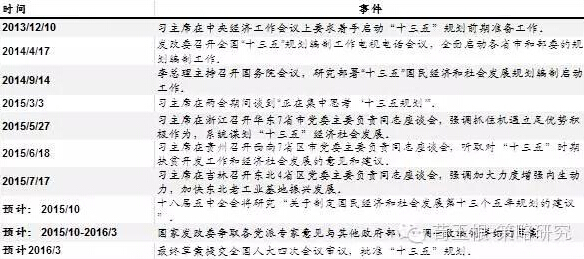 时间 事件
2013/12/10 习主席在中央经济工作会议上要求着手启动“十三五”规划前期准备工作。
2014/4/17 发改委召开全国“十三五”规划编制工作电视电话会议，全面启动各省市和部委的规
划编制工作。
2014/9/14 李总理主持召开国务院会议，研究部署“十三五”国民经济和社会发展规划编制启动
工作。
2015/3/3 习主席在两会期间谈到“正在集中思考‘十三五规划’”。
2015/5/27 习主席在浙江召开华东7省市党委主要负责同志座谈会，强调抓住机遇立足优势积
极作为，系统谋划“十三五”经济社会发展。
2015/6/18 习主席在贵州召开西南7省区市党委主要负责同志座谈会，听取对“十三五”时期
扶贫开发工作和经济社会发展的意见和建议。
2015/7/17 习主席在吉林召开东北4省区党委主要负责同志座谈会，强调加大力度增强内生动
力，加快东北老工业基地振兴发展。
预计：2015/10 十八届五中全会将研究“关于制定国民经济和社会发展第十三个五年规划的建议
”。
预计：2015/10-2016/3 国家发改委争取各党派专家意见与其他政府部
预计2016/3 最终草案提交全国人大四次会议审议，批准“十三五”规划。
策略研究